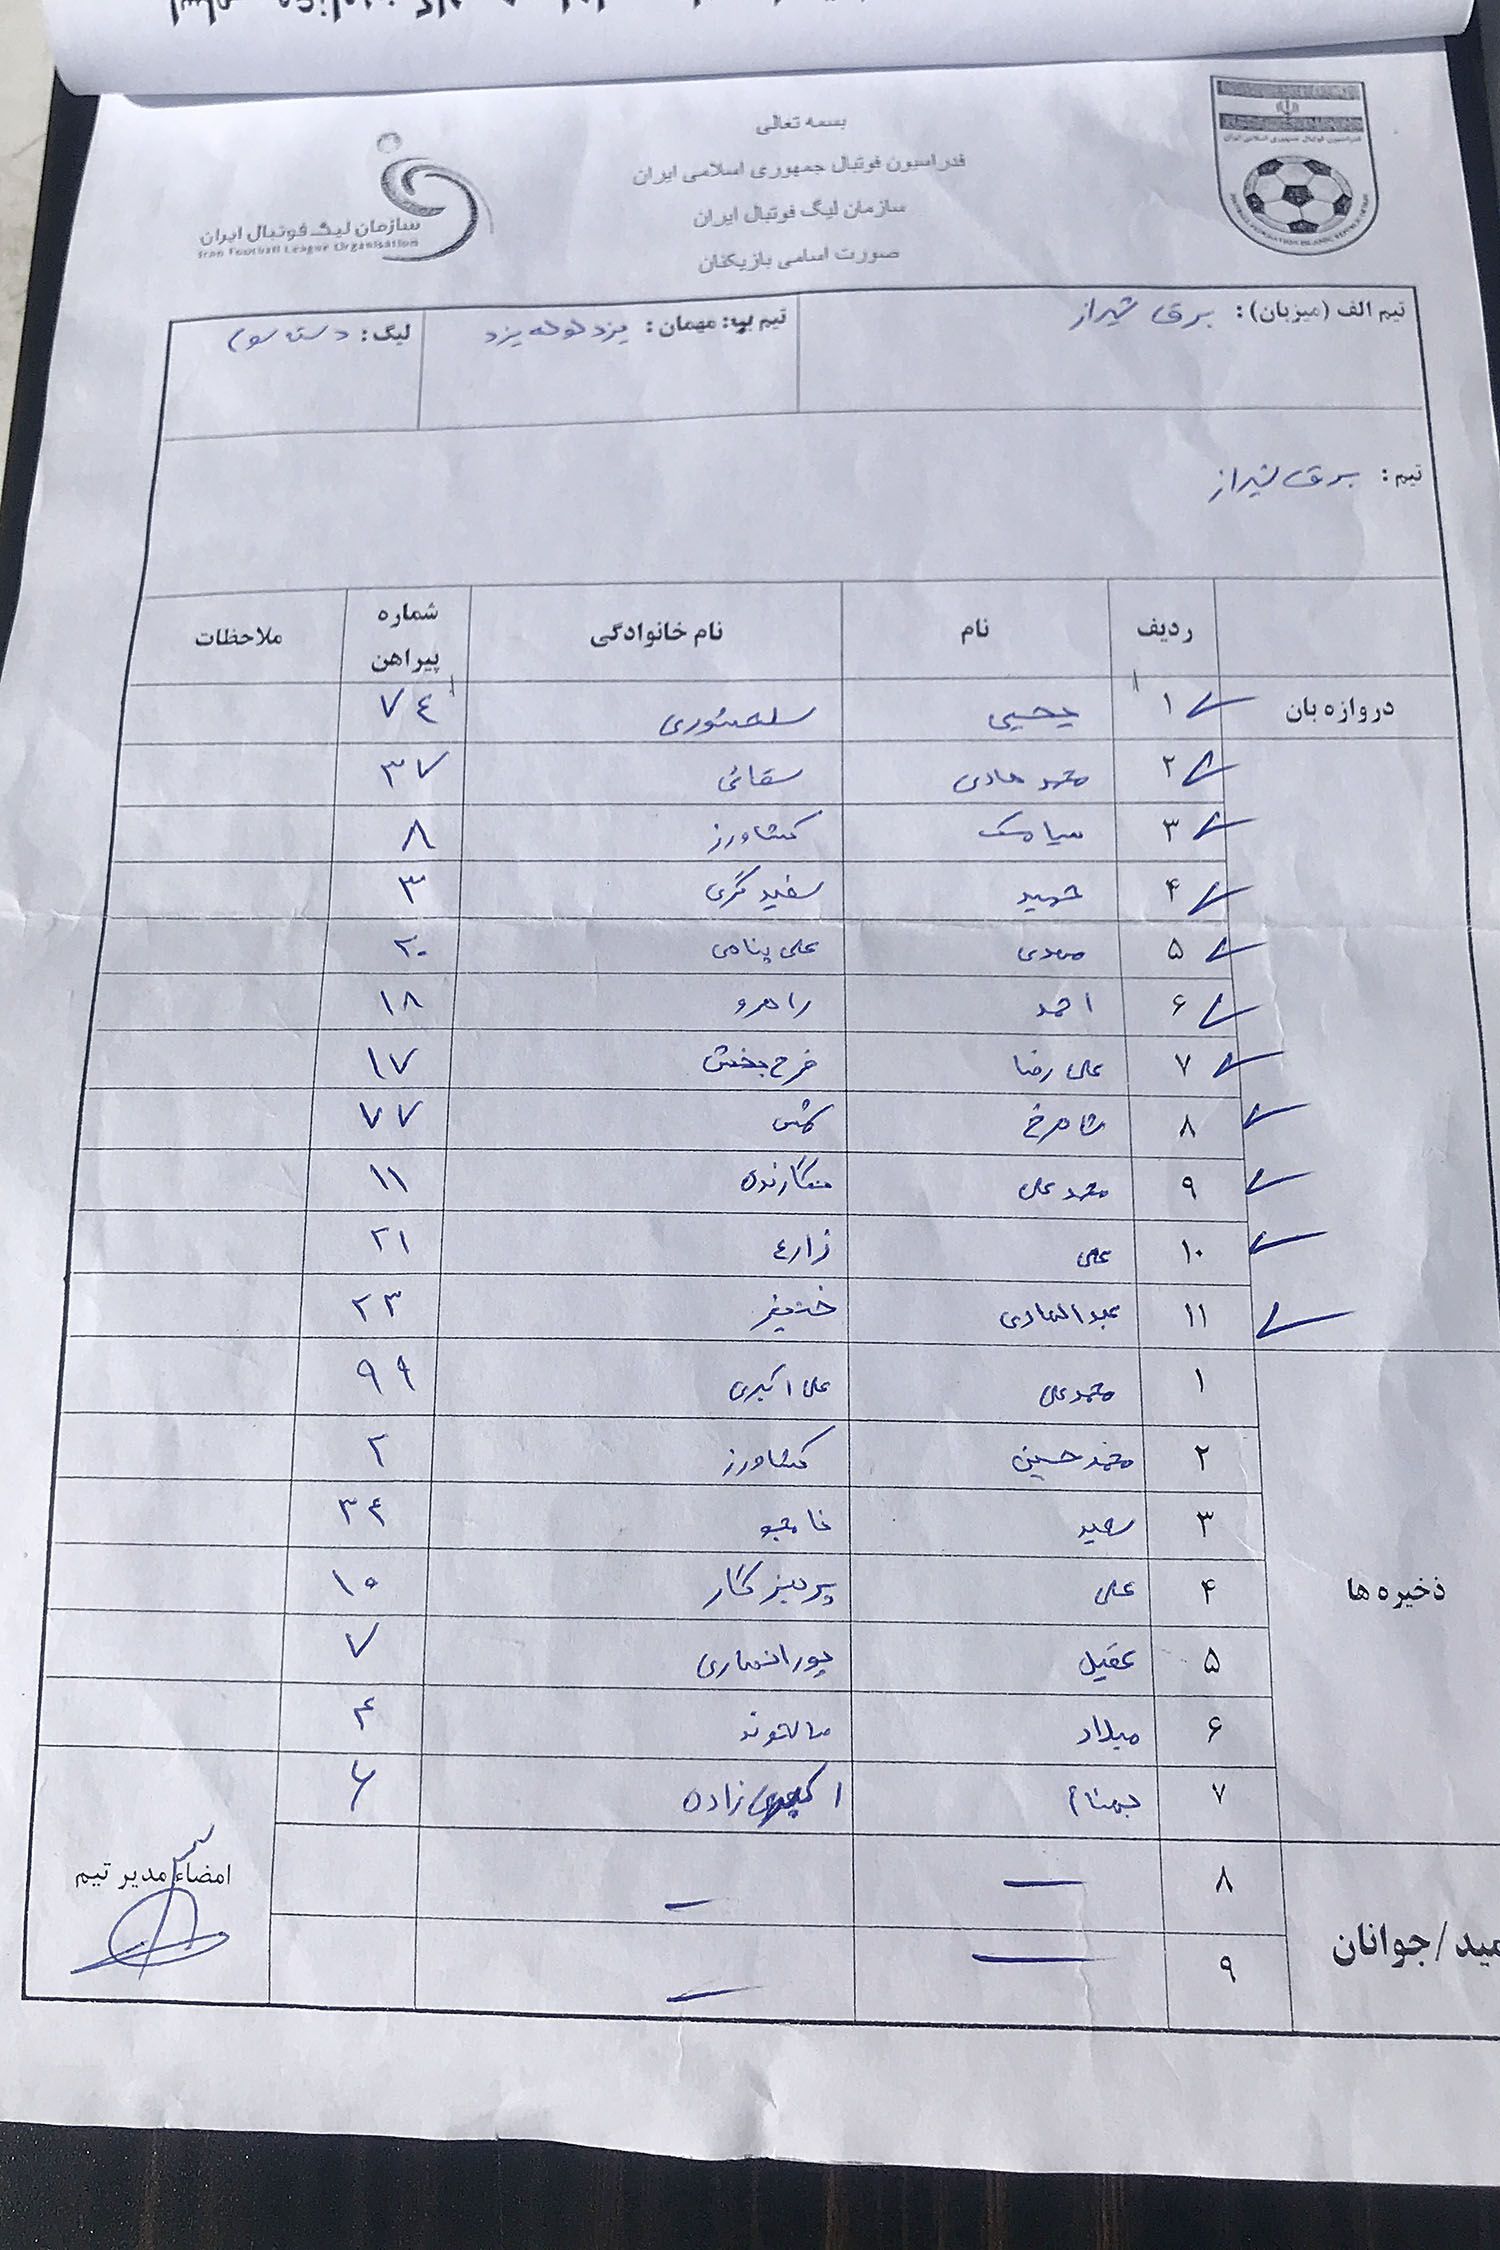 بسمه تعالی
فدراسیون فوتبال جمهوری اسلامی ایران
سازمان لیگ فوتبال ایران
صورت اسامی بازیکنان
فدراسیون فوتبال جمهوری اسلامی ایران
سازمان لیگ فوتبال ایران
Iran Football League Organisation
تیم الف (میزبان): برق شیراز تیم ب: مهمان: یزدلوله یزد لیگ: دسته سوم
تیم: برق شیراز
ردیف نام نام خانوادگی شماره پیراهن ملاحظات
دروازه بان ۱ یحیی ۷۴
۲ محمدهادی سقائی ۳۷
۳ سیامک کشاورز ۸
۴ حمید سفیدگری ۳
۵ مهدی علی پناهی ۲۰
۶ احمد راهرو ۱۸
۷ علی رضا فرح بخش ۱۷
۸ شاهرخ ۷۷
۹ محمدعلی نگارنده ۱۱
۱۰ علی زارع ۲۱
۱۱ عبدالهادی خنیفر ۲۳
ذخیره ها
۱ محمدعلی علی اکبری ۹۹
۲ محمدحسین کشاورز ۲
۳ سعید نامجو ۳۴
۴ علی پرهیزگار ۱۰
۵ عقیل پورانصاری ۷
۶ میلاد مالئوند ۴
۷ بهنام زاده ۶
مید/جوانان
۸ — —
۹ — —
امضاء مدیر تیم